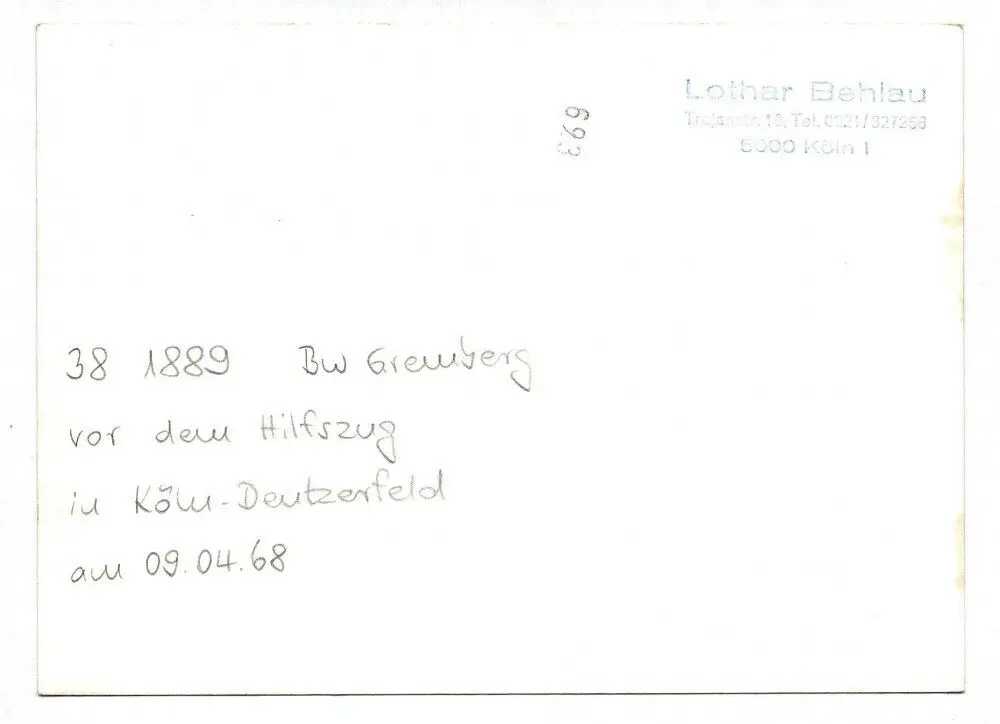 Lothar Behlau
Trajanstr. 12, Tel. 0221/327256
5000 Köln 1
693
38 1889 Bw Gremberg
vor dem Hilfszug
in Köln-Deutzerfeld
am 09.04.68